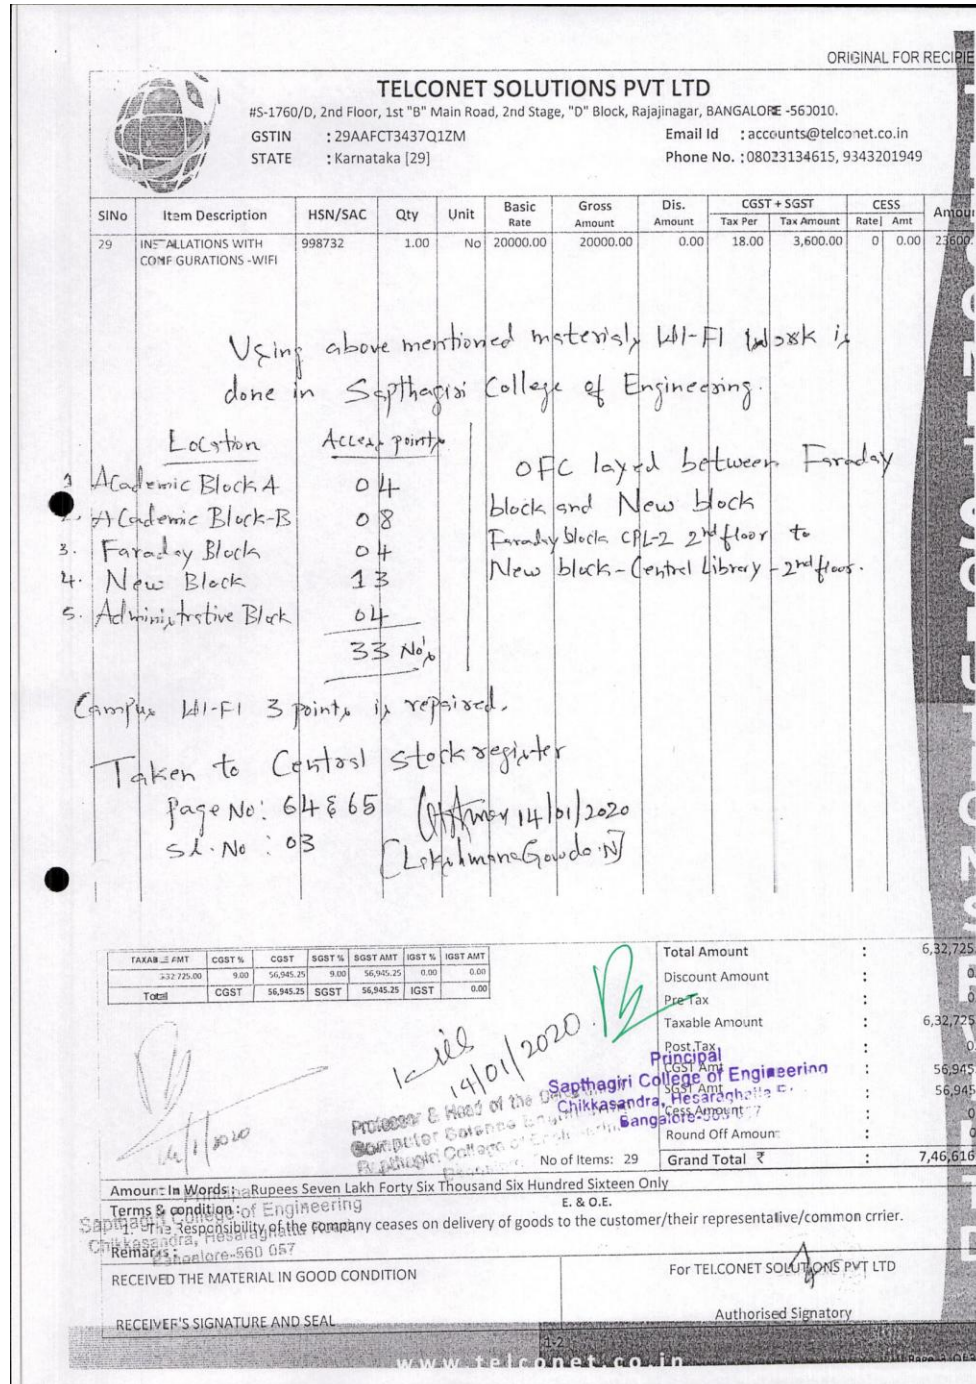 ORIGINAL FOR RECIPIE
TELCONET SOLUTIONS PVT LTD
#S-1760/D, 2nd Floor, 1st "B" Main Road, 2nd Stage, "D" Block, Rajajinagar, BANGALORE -560010.
GSTIN : 29AAFCT3437Q1ZM Email Id : accounts@telconet.co.in
STATE : Karnataka [29] Phone No. : 08023134615, 9343201949
SlNo Item Description HSN/SAC Qty Unit Basic Rate Gross Amount Dis. Amount CGST + SGST Tax Per Tax Amount CESS Rate Amt Amoun
29 INSTALLATIONS WITH 998732 1.00 No 20000.00 20000.00 0.00 18.00 3,600.00 0 0.00 23600.
GURATIONS -WIFI
Using above mentioned materials WI-FI work is
done in Sapthagiri College of Engineering.
Location Access points
1 Academic Block A 04
2. Academic Block-B 08
3. Faraday Block 04
4. New Block 13
5. Administrative Block 04
33 No's
OFC layed between Faraday
block and New block
Faraday block CPL-2 2nd floor to
New block - Central Library - 2nd floor.
Campus WI-FI 3 points is repaired.
Taken to Central stock register
Page No: 64 & 65
Sl. No : 03
14/01/2020
[Lakshmana Gowda.N]
TAXABLE AMT CGST % CGST SGST % SGST AMT IGST % IGST AMT
632725.00 9.00 56,945.25 9.00 56,945.25 0.00 0.00
Total CGST 56,945.25 SGST 56,945.25 IGST 0.00
Total Amount : 6,32,725
Discount Amount : 0
Pre Tax : 0
Taxable Amount : 6,32,725
Post Tax : 0
CGST Amt : 56,945
SGST Amt : 56,945
Cess Amount : 0
Round Off Amount : 0
Grand Total ₹ : 7,46,616
14/01/2020
Principal
Sapthagiri College of Engineering
Chikkasandra, Hesaraghatta
Bangalore-560 057
Professor & Head of the
Computer Science
Sapthagiri College of
No of Items: 29
Amount In Words : Rupees Seven Lakh Forty Six Thousand Six Hundred Sixteen Only
Terms & condition : E. & O.E.
1. The Responsibility of the company ceases on delivery of goods to the customer/their representative/common crrier.
Remarks :
Principal
Sapthagiri College of Engineering
Chikkasandra, Hesaraghatta
Bangalore-560 057
RECEIVED THE MATERIAL IN GOOD CONDITION
For TELCONET SOLUTIONS PVT LTD
RECEIVER'S SIGNATURE AND SEAL
Authorised Signatory
1-2
www.telconet.co.in